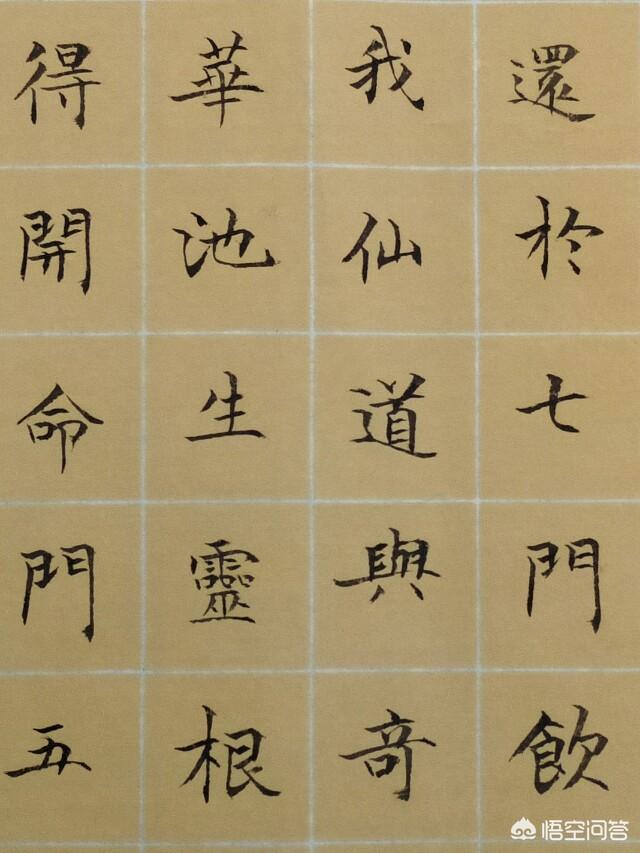 還於七門飲
我仙道與竒
華池生靈根
得開命門五
悟空问答